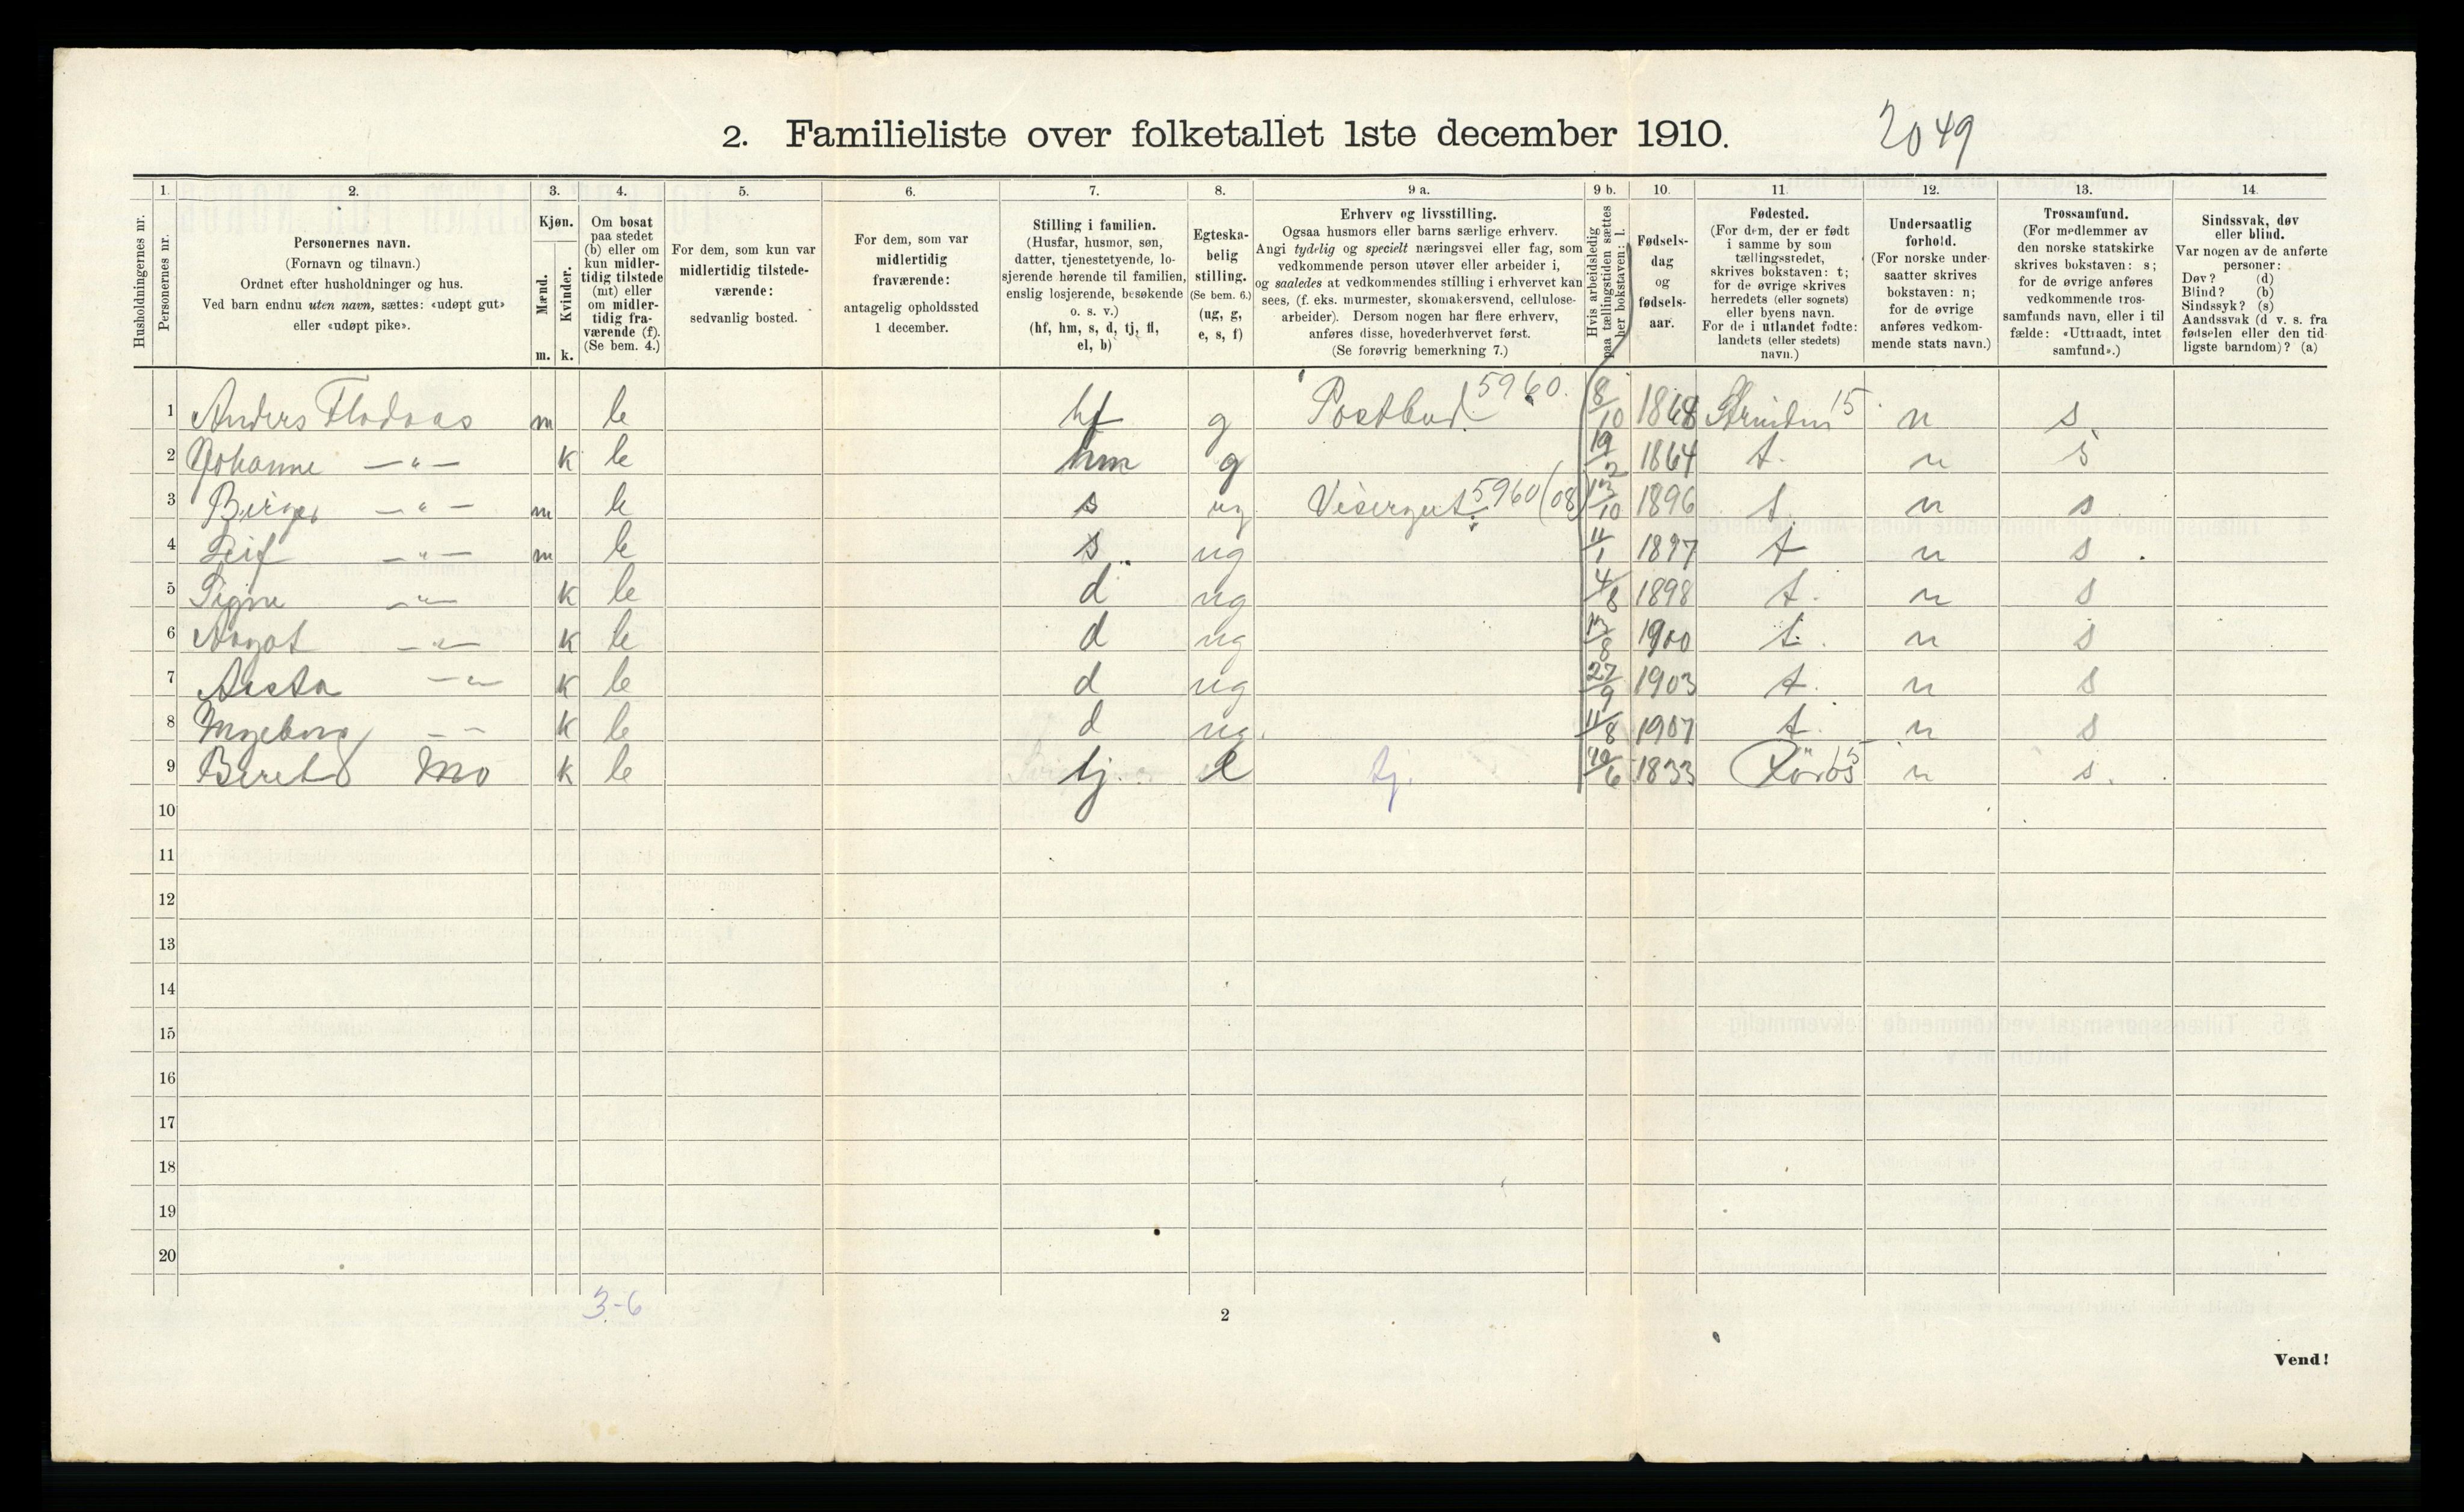 2. Familieliste over folketallet 1ste december 1910. 2049
1. 2. 3. 4. 5. 6. 7. 8. 9 a. 9 b. 10. 11. 12. 13. 14.
Husholdningernes nr.
Personernes nr.
Personernes navn.
(Fornavn og tilnavn.)
Ordnet efter husholdninger og hus.
Ved barn endnu uten navn, sættes: «udøpt gut»
eller «udøpt pike».
Kjøn.
Mænd.
Kvinder.
m. k.
Om bosat
paa stedet
(b) eller om
kun midler-
tidig tilstede
(mt) eller
om midler-
tidig fra-
værende (f).
(Se bem. 4.)
For dem, som kun var
midlertidig tilstede-
værende:
sedvanlig bosted.
For dem, som var
midlertidig
fraværende:
antagelig opholdssted
1 december.
Stilling i familien.
(Husfar, husmor, søn,
datter, tjenestetyende, lo-
sjerende hørende til familien,
enslig losjerende, besøkende
o. s. v.)
(hf, hm, s, d, tj, fl,
el, b)
Egteska-
belig
stilling.
(Se bem. 6.)
(ug, g,
e, s, f)
Erhverv og livsstilling.
Ogsaa husmors eller barns særlige erhverv.
Angi tydelig og specielt næringsvei eller fag, som
vedkommende person utøver eller arbeider i,
og saaledes at vedkommendes stilling i erhvervet kan
sees, (f. eks. murmester, skomakersvend, cellulose-
arbeider). Dersom nogen har flere erhverv,
anføres disse, hovederhvervet først.
(Se forøvrig bemerkning 7.)
Hvis arbeidsledig
paa tællingstiden sættes
her bokstaven: l.
Fødsels-
dag
og
fødsels-
aar.
Fødested.
(For dem, der er født
i samme by som
tællingsstedet,
skrives bokstaven: t;
for de øvrige skrives
herredets (eller sognets)
eller byens navn.
For de i utlandet fødte:
landets (eller stedets)
navn.)
Undersaatlig
forhold.
(For norske under-
saatter skrives
bokstaven: n;
for de øvrige
anføres vedkom-
mende stats navn.)
Trossamfund.
(For medlemmer av
den norske statskirke
skrives bokstaven: s;
for de øvrige anføres
vedkommende tros-
samfunds navn, eller i til
fælde: «Uttraadt, intet
samfund».)
Sindssvak, døv
eller blind.
Var nogen av de anførte
personer:
Døv? (d)
Blind? (b)
Sindssyk? (s)
Aandssvak (d v. s. fra
fødselen eller den tid-
ligste barndom)? (a)
1 Anders Flodaas m b hf g Postbud. 5960. 8/10 1868 Strinden 15 n s
2 Johanne —"— k b hm g 19/2 1864 t. n s
3 Birger —"— m b s ug Visergut 5960 (08) 13/10 1896 t. n s
4 Leif —"— m b s ug 11/1 1897 t n s
5 Signe —"— k b d ug 4/8 1898 t. n s
6 Aagot —"— k b d ug 1900 t. n s
7 Aasta —"— k b d ug 27/9 1903 t. n s
8 Ingeborg — — k b d ug. 11/8 1907 t. n s
9 Beret Mo k b tj. e tj. 1833 Röros 15 n s.
10
11
12
13
14
15
16
17
18
19
20
3-6
2
Vend!